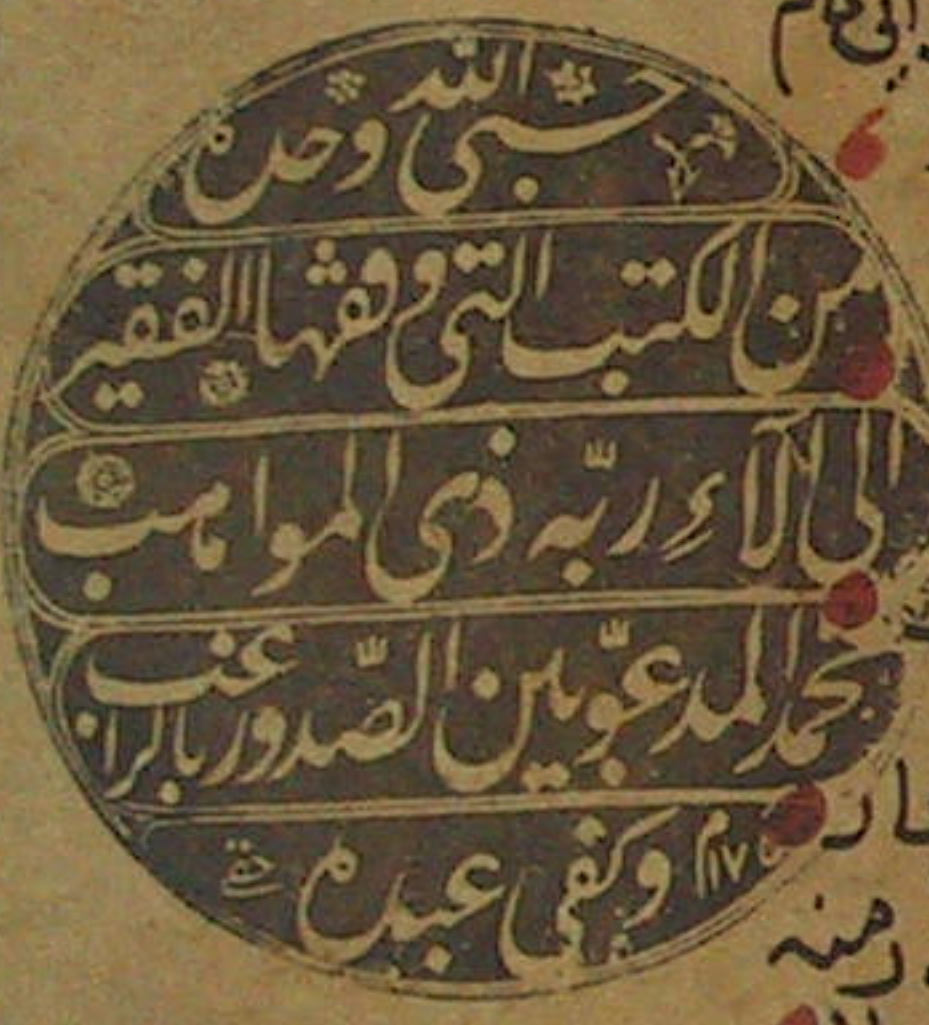 حسبي الله وحده
من الكتب التي وقفها الفقير
الى آلاءِ ربّه ذي المواهب
محمد المدعوّ بين الصّدور بالراغب
وكفى عبده
منه